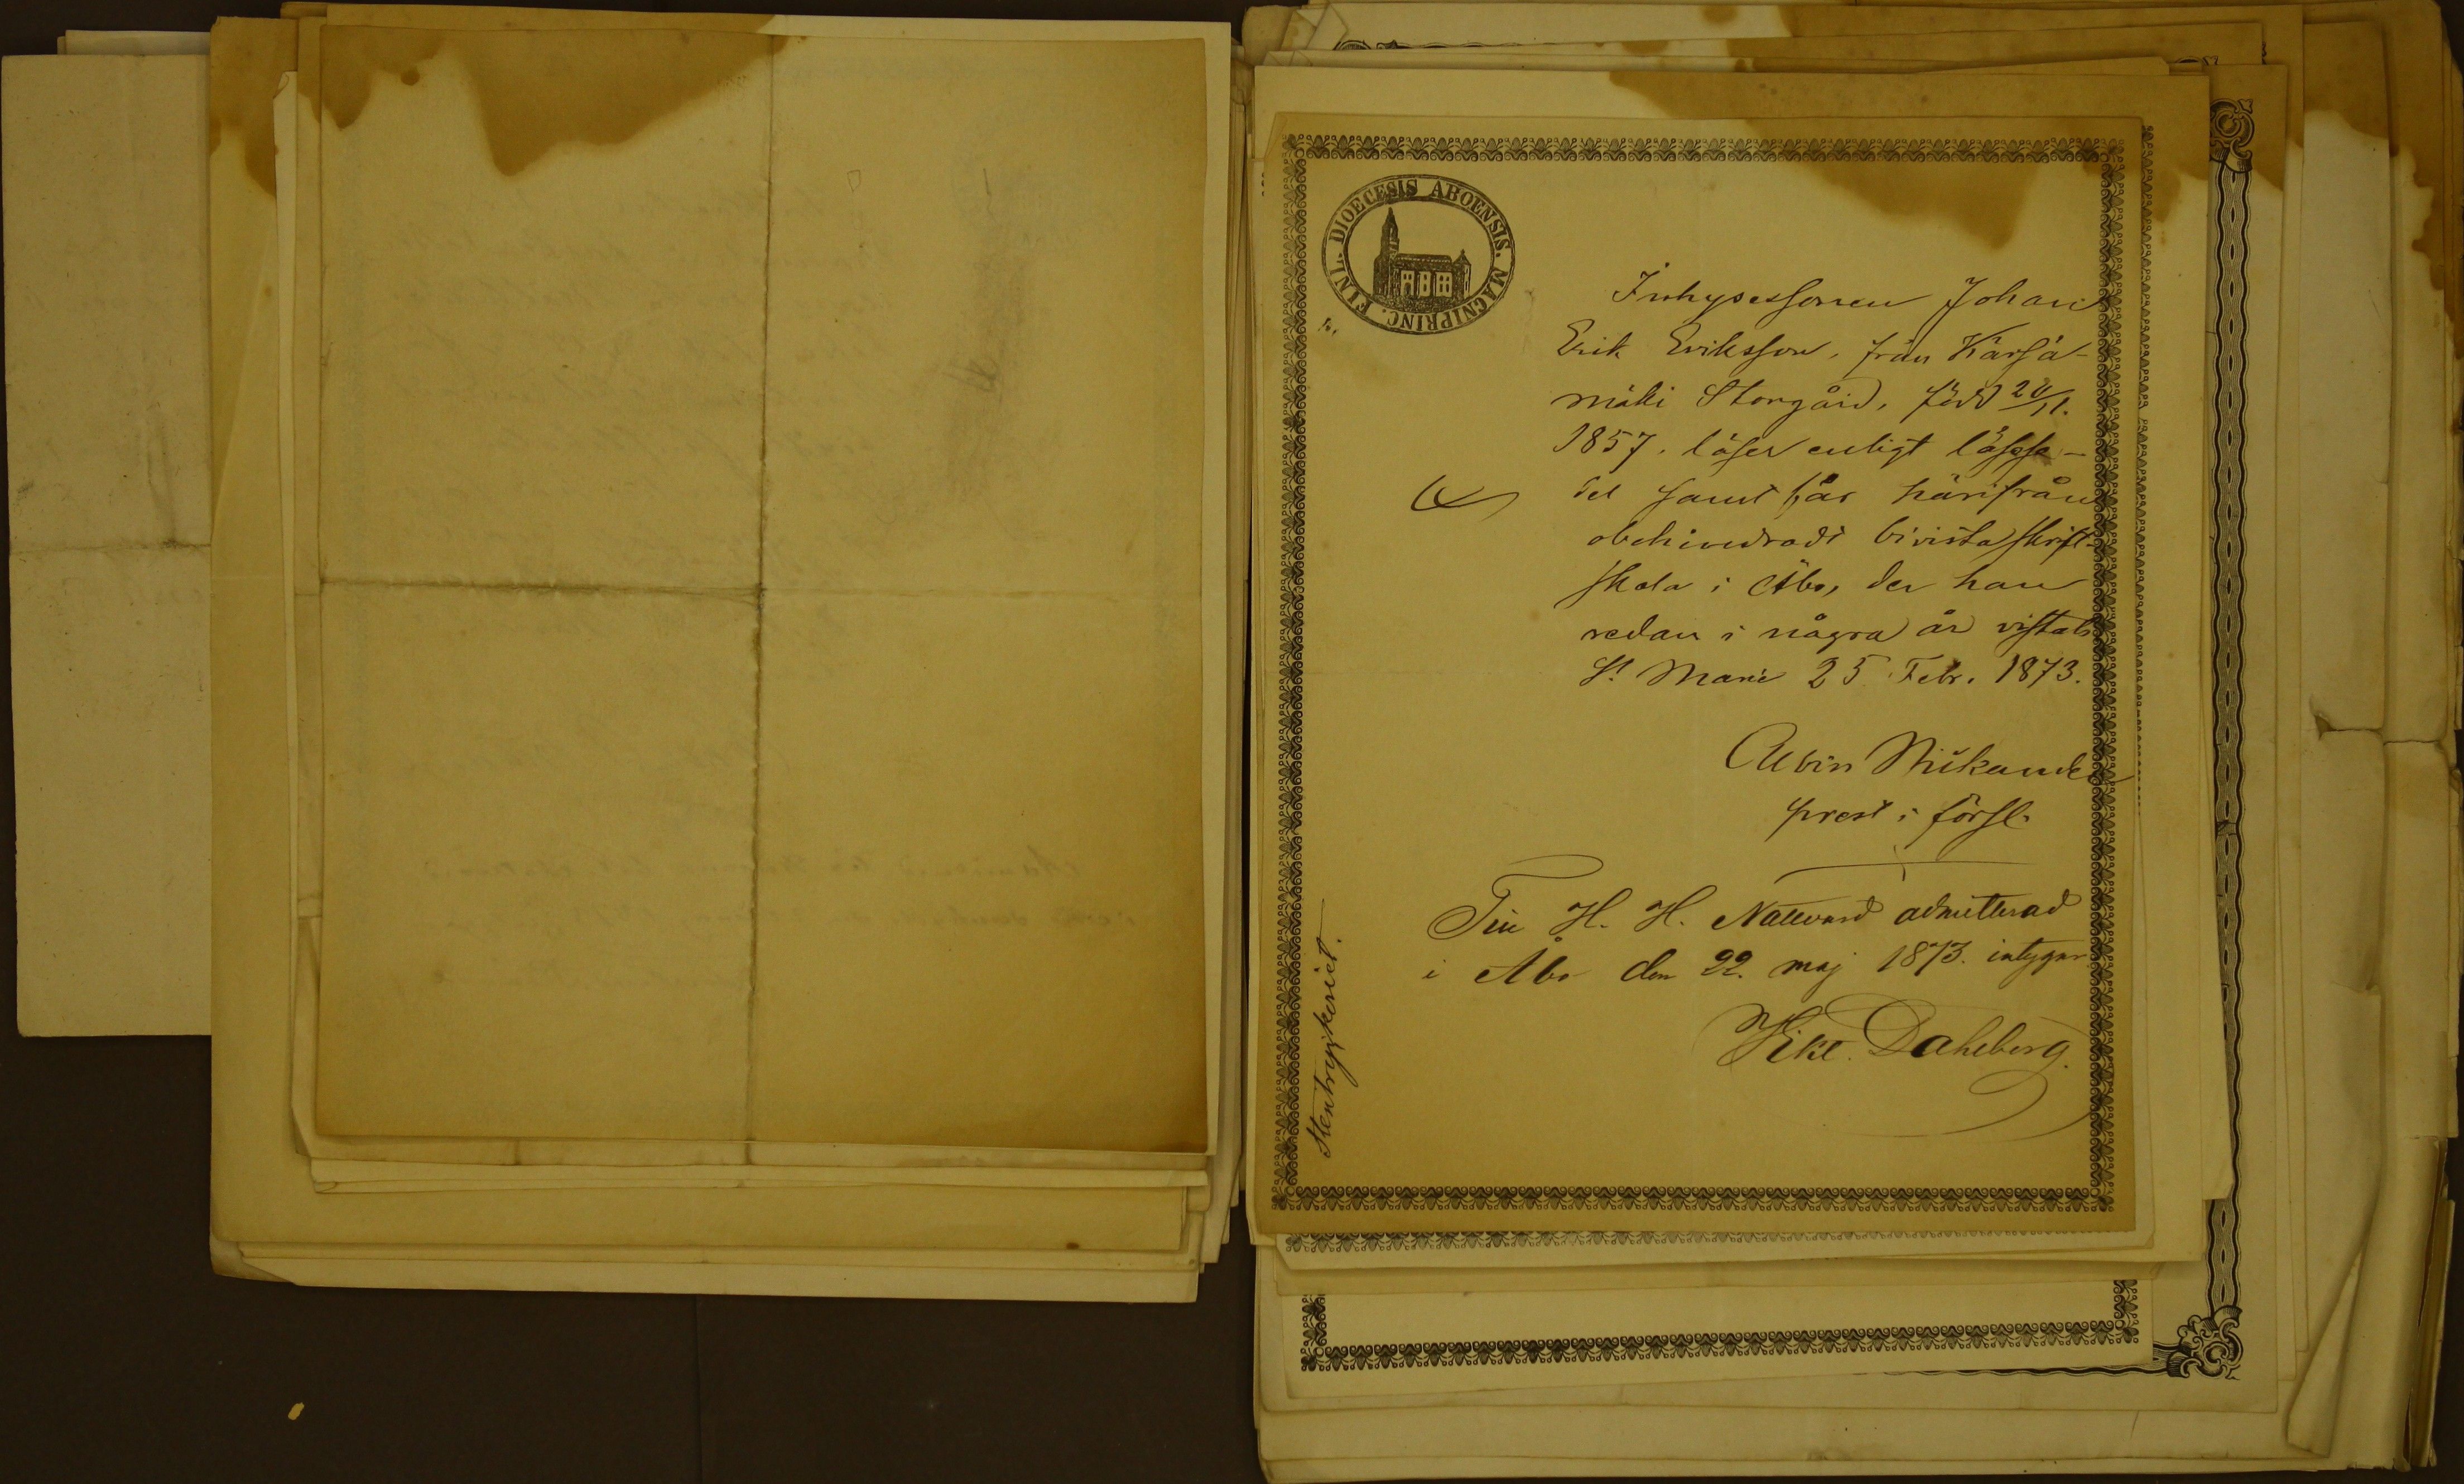 FINL. DIOECESIS ABOENSIS. MAGNIPRINC.
Inhysessonen Johan
Erik Eriksson, från Kärsä-
mäki Storgård, född 20/11.
1857. läser enligt läsese-
del samt får härifrån
obehindradt bivista skrift-
skola i Åbo, der han
redan i några år vistats
St Marie 25 Febr. 1873.
Albin Nikander
prest i förs.
Till H. H. Nattvard admitterad
i Åbo den 22. maj 1873. intygar
Dahlberg.
Stentryckeriet.